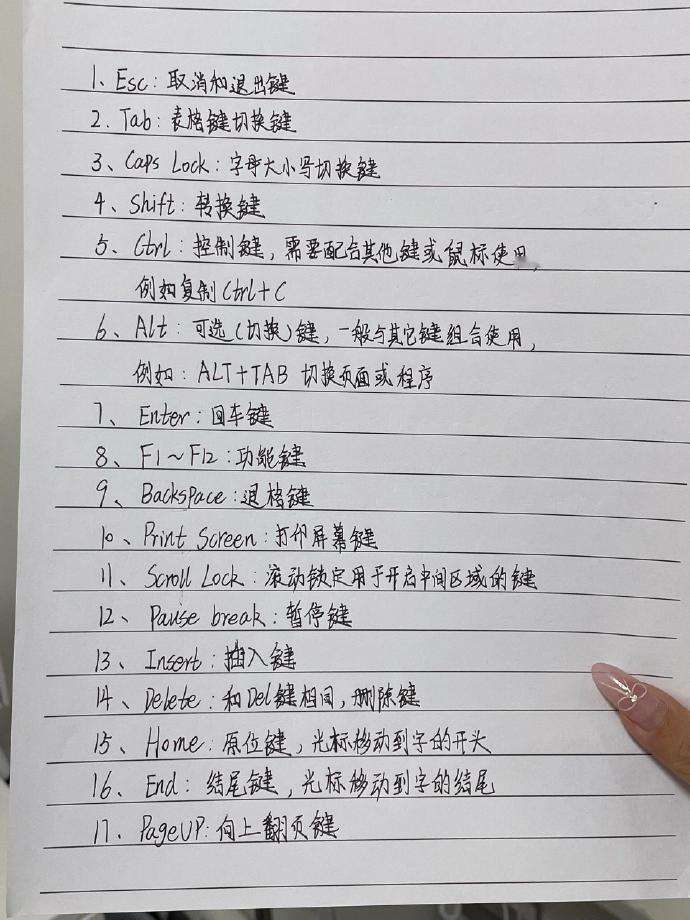 1、Esc：取消和退出键
2、Tab：表格键切换键
3、Caps Lock：字母大小写切换键
4、Shift：转换键
5、Ctrl：控制键，需要配合其他键或鼠标使用，
例如复制Ctrl+C
6、Alt：可选（切换）键，一般与其它键组合使用，
例如：ALT+TAB 切换页面或程序
7、Enter：回车键
8、F1～F12：功能键
9、Backspace：退格键
10、Print Screen：打印屏幕键
11、Scroll Lock：滚动锁定用于开启中间区域的键
12、Pause break：暂停键
13、Insert：插入键
14、Delete：和Del键相同，删除键
15、Home：原位键，光标移动到字的开头
16、End：结尾键，光标移动到字的结尾
17、PageUP：向上翻页键